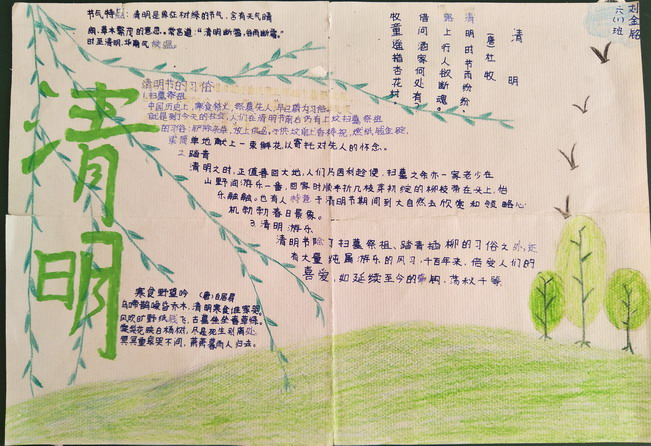 刘金铭
六(1)班
节气特点:清明是象征树绿的节气,含有天气晴
朗,草木繁茂的意思。常言道:“清明断雪,谷雨断霜。”
时至清明,华南气候温
清明
(唐)杜牧
清明时节雨纷纷,
路上行人欲断魂。
借问酒家何处有?
牧童遥指杏花村。
清明
清明节的习俗
1.扫墓祭祖
中国历史上,寒食禁火,祭奠先人,早已蔚为习俗
就是到了今天的社会,人们在清明节前后仍有上坟扫墓祭祖
的习俗:铲除杂草,放上供品,于坟前上香祷祝,燃纸钱金锭
或简单地献上一束鲜花,以寄托对先人的怀念。
2.踏青
清明之时,正值春回大地,人们乃因利趁便,扫墓之余亦一家老少在
山野间游乐一番,回家时顺手折几枝芽初绽的柳枝带在头上,怡
乐融融。也有人特意于清明节期间到大自然去欣赏和领略
机勃勃春日景象。
3.清明游乐
清明节除了扫墓祭祖、踏青插柳的习俗之外,还
有大量纯属游乐的风习,千百年来,倍受人们的
喜爱,如延续至今的 荡秋千等
寒食野望吟
(唐)白居易
乌啼鹊噪昏乔木,清明寒食谁家哭
风吹旷野纸钱飞,古墓垒垒春草绿。
棠梨花映白杨树,尽是死生别离处
冥冥重泉哭不闻,萧萧暮雨人归去。